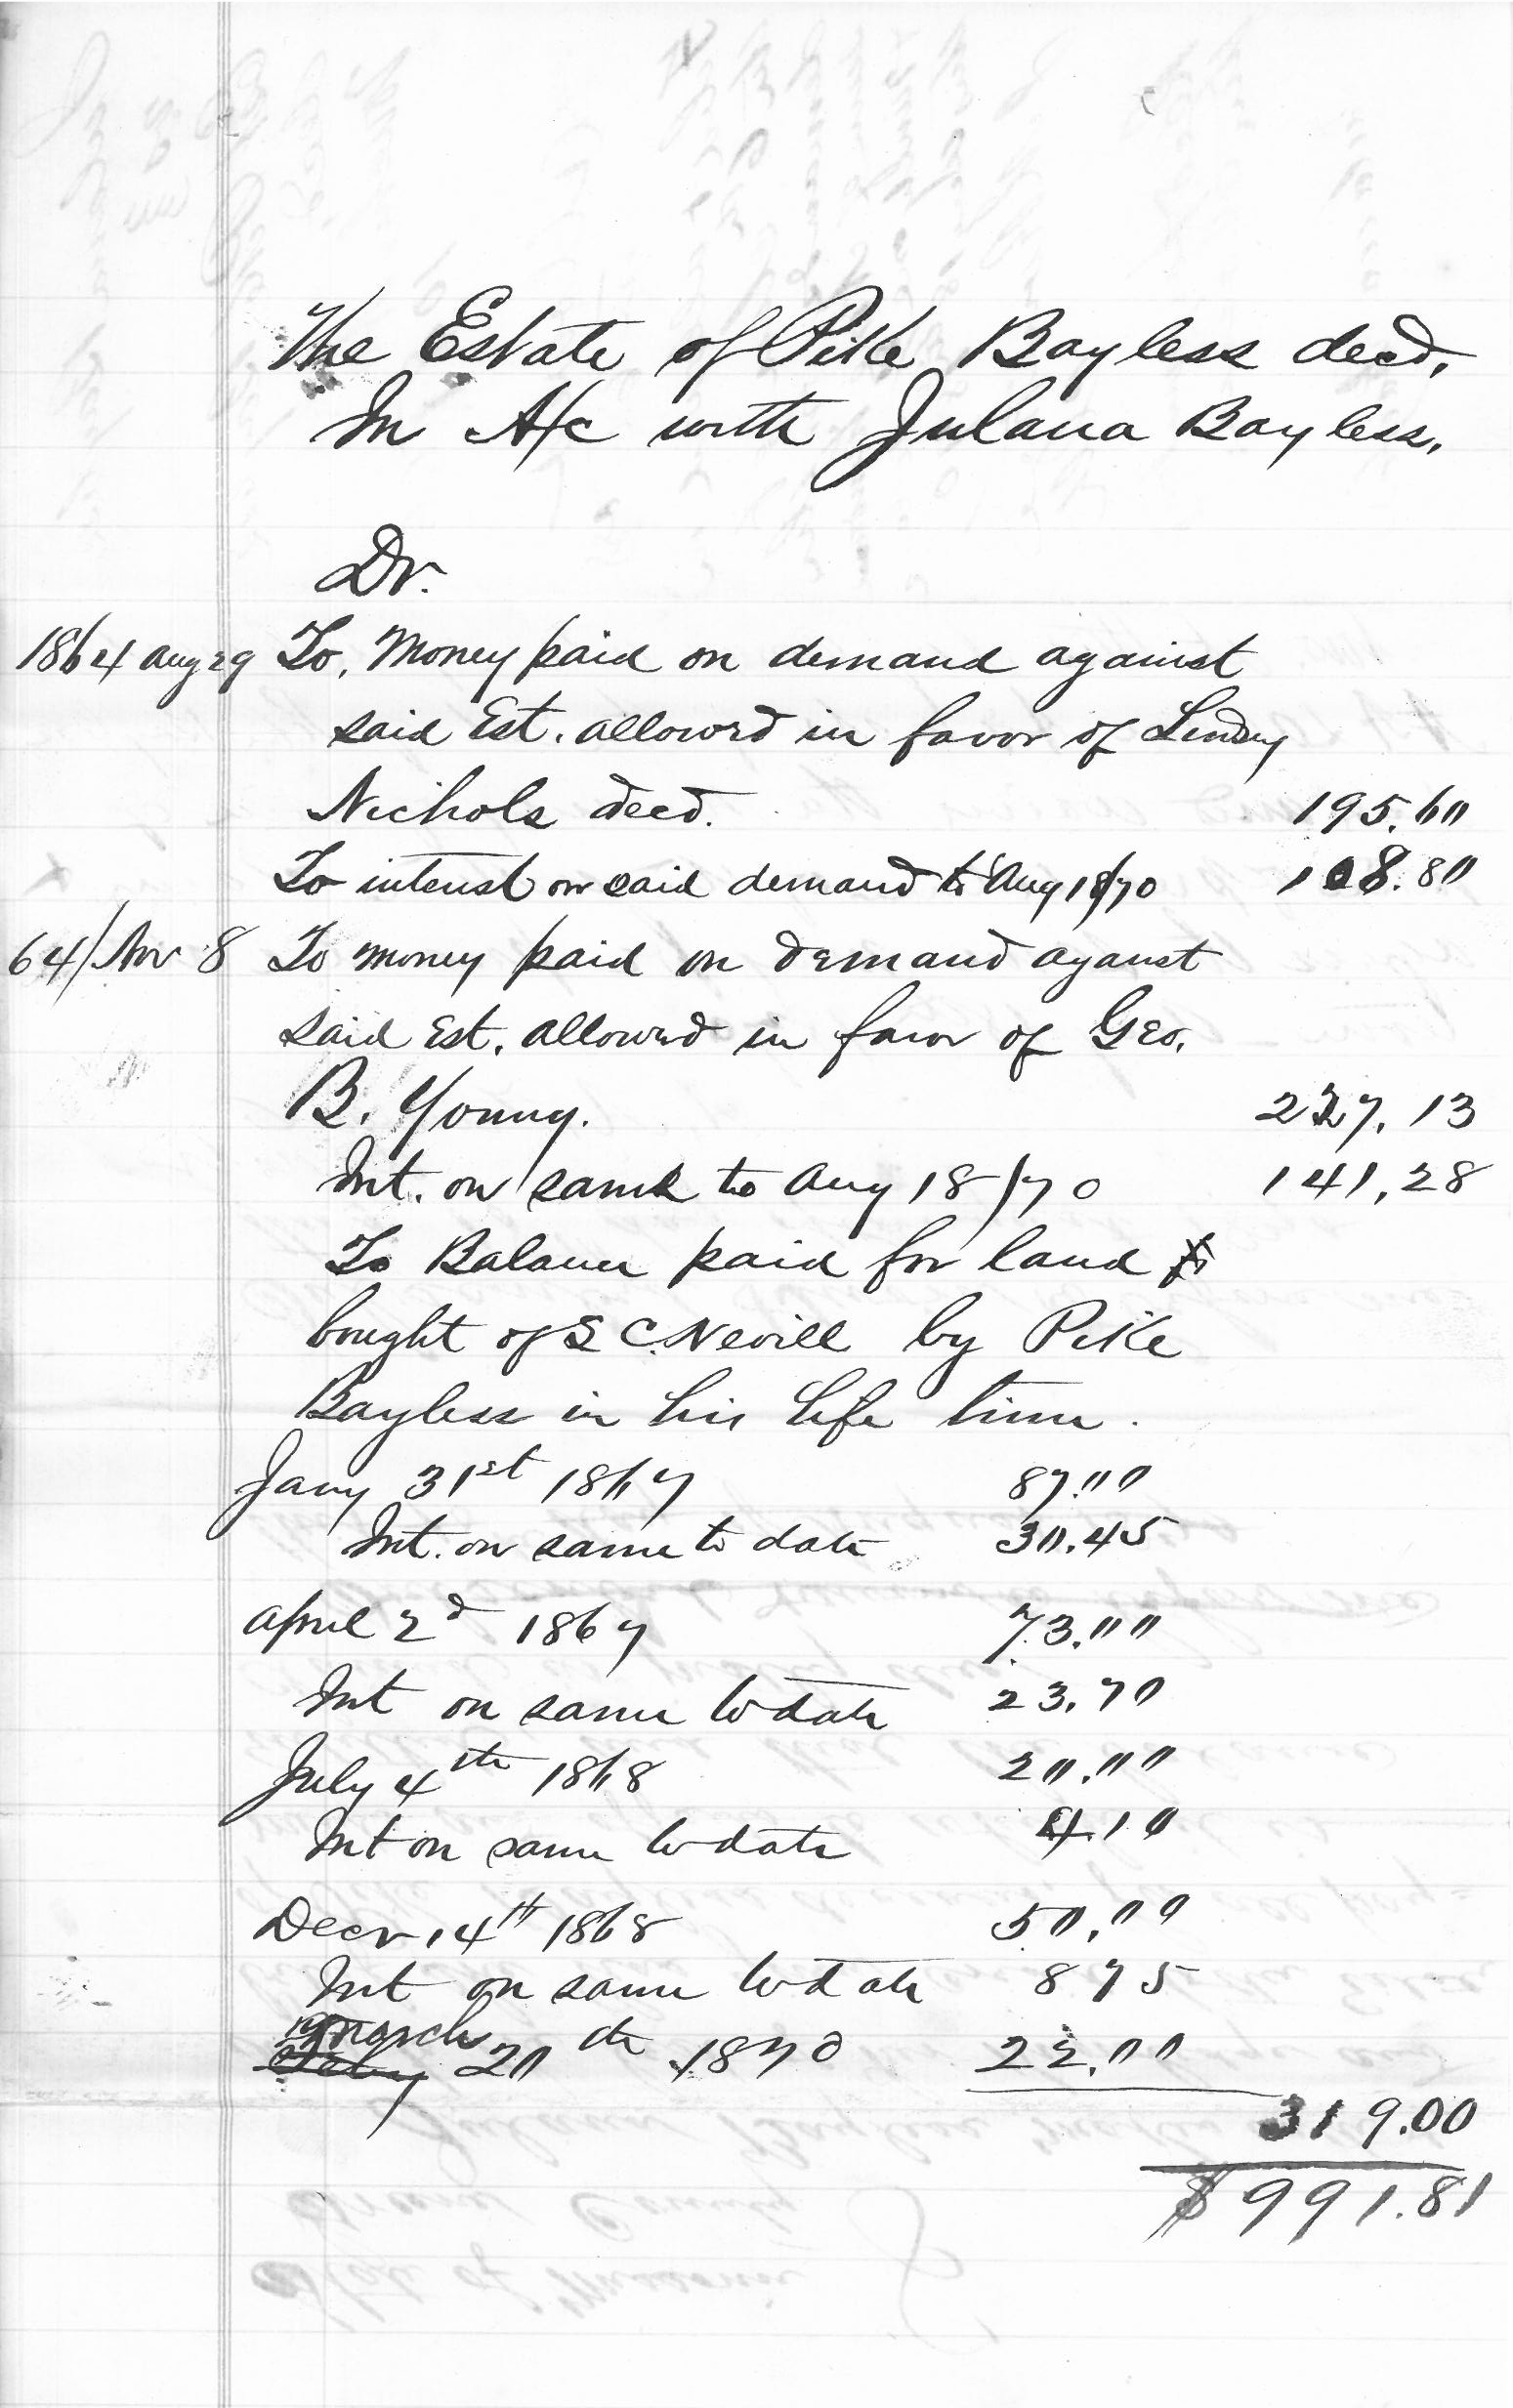 The Estate of Pike Bayless decd.
In A/c with Julana Bayless.
Dr.
1864 Aug 29 To, Money paid on demand against
said Est. allowed in favor of Lindsy
Nichols decd. 195.60
To interest on said demand to Aug 18/70 108.80
64/Nov 8 To money paid on demand against
said Est. allowed in favor of Geo.
B. Young. 227.13
Int. on same to Aug 18/70 141,28
To Balance paid for land
bought of S C. Nevill by Pike
Bayless in his life time.
Jany 31st 1867 87.00
Int. on same to date 30.45
April 2d 1867 73.00
Int on same to date 23.70
July 4th 1868 20.00
Int on same to date 4.10
Decr 14th 1868 50.00
Int on same to date 8 75
March
Feby 20th 1870 22.00
319.00
$991.81